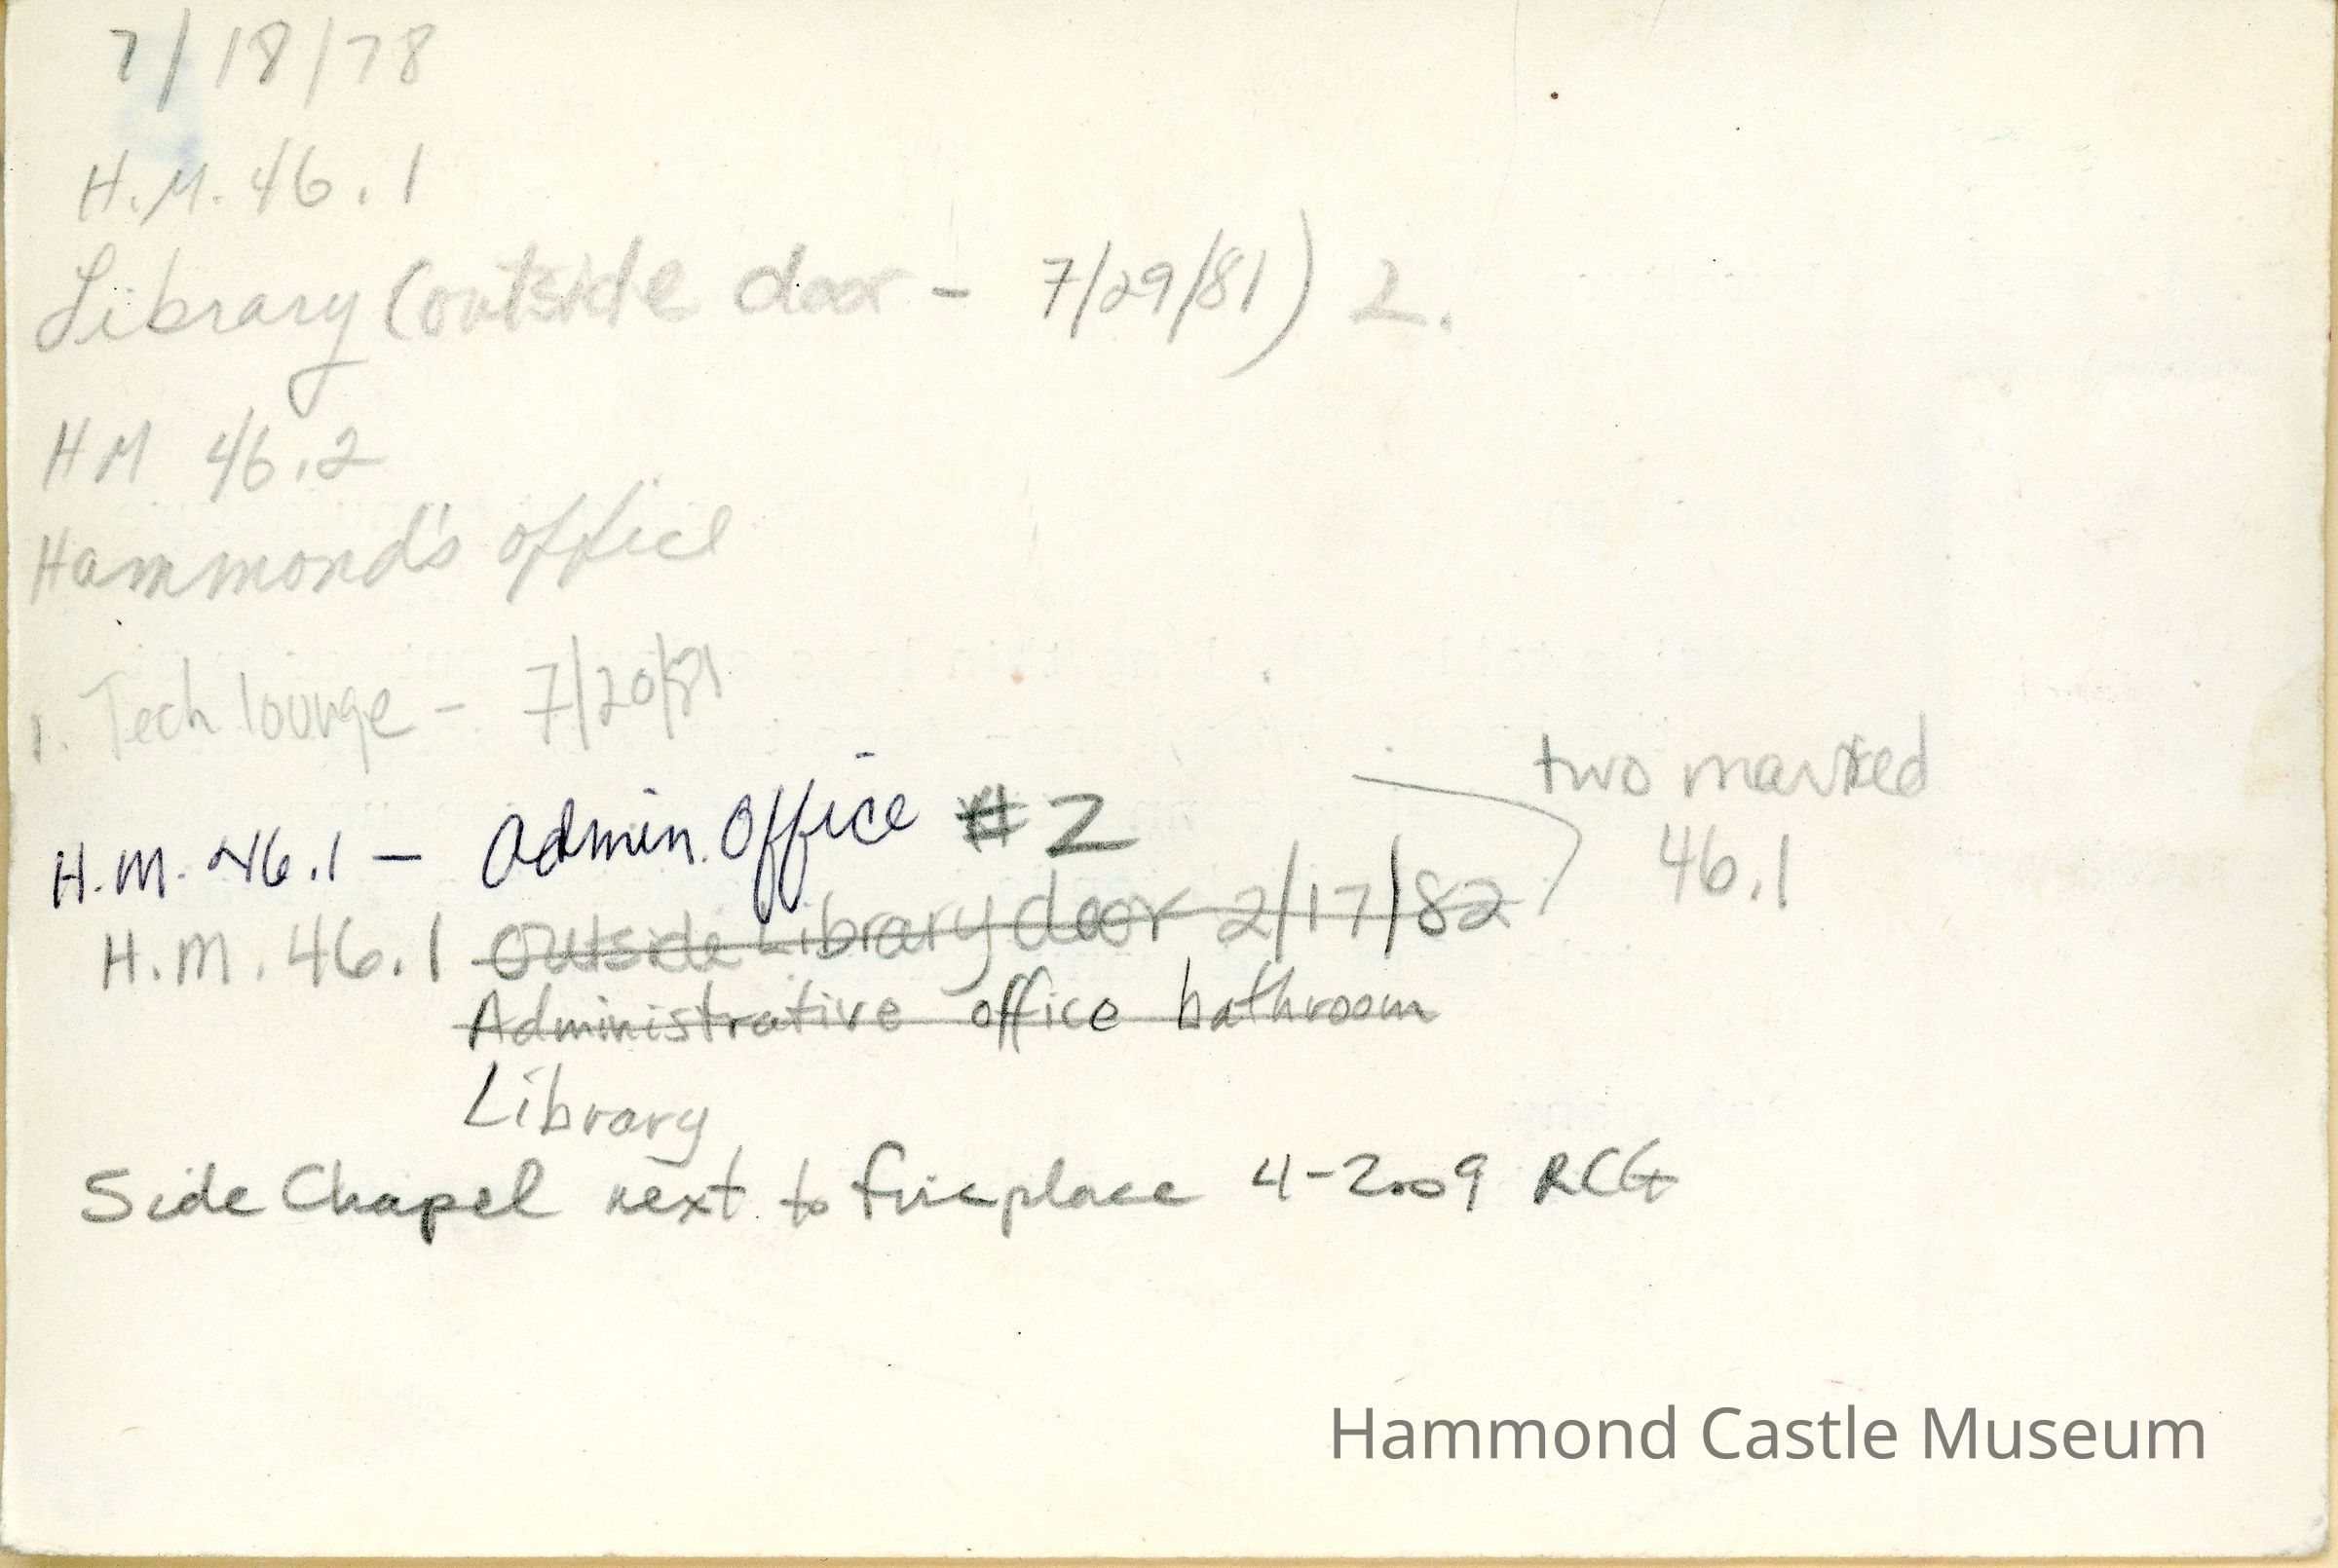 7/18/78
H.M. 46.1
Library (outside door - 7/29/81) 2.
HM 46.2
Hammond's office
1. Tech lounge - 7/20/81
two marked
46.1
H.M. 46.1 — Admin. Office #2
H.M. 46.1 Outside Library door 2/17/82
Administrative office bathroom
Library
Side Chapel next to fireplace 4-2009 RCG
Hammond Castle Museum